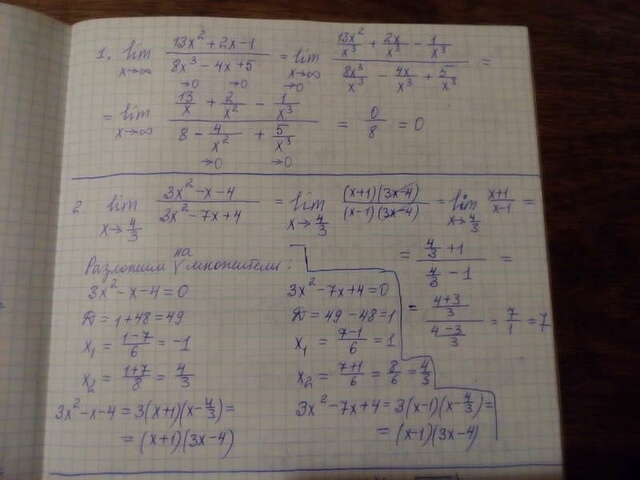 1. lim x→∞ (13x²+2x-1)/(8x³-4x+5) = lim x→∞ (13x²/x³ + 2x/x³ - 1/x³)/(8x³/x³ - 4x/x³ + 5/x³) =
→0 →0 →0
= lim x→∞ (13/x + 2/x² - 1/x³)/(8 - 4/x² + 5/x³) = 0/8 = 0
→0 →0
2. lim x→4/3 (3x²-x-4)/(3x²-7x+4) = lim x→4/3 ((x+1)(3x-4))/((x-1)(3x-4)) = lim x→4/3 (x+1)/(x-1) =
= (4/3+1)/(4/3-1) =
= ((4+3)/3)/((4-3)/3) = 7/1 = 7
Разложим на множители:
3x²-x-4=0
D=1+48=49
x₁ = (1-7)/6 = -1
x₂ = (1+7)/8 = 4/3
3x²-x-4 = 3(x+1)(x-4/3) =
= (x+1)(3x-4)
3x²-7x+4=0
D=49-48=1
x₁ = (7-1)/6 = 1
x₂ = (7+1)/6 = 8/6 = 4/3
3x²-7x+4 = 3(x-1)(x-4/3) =
= (x-1)(3x-4)